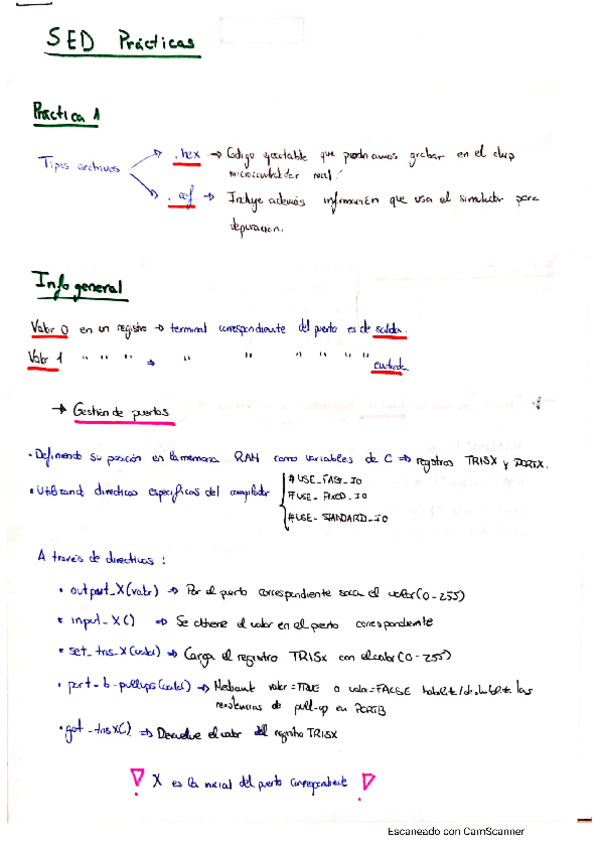 SED Prácticas
Práctica 1
Tipos archivos
.hex → Código ejecutable que podríamos grabar en el chip
microcontrolador real.
.cof → Incluye además información que usa el simulador para
depuración.
Info general
Valor 0 en un registro → terminal correspondiente del puerto es de salida.
Valor 1 " " " → " " " " " " entrada.
→ Gestión de puertos
• Definiendo su posición en la memoria RAM como variables de C ⇒ registros TRISX y PORTX.
• Utilizando directivas específicas del compilador
#USE_FAST_IO
#USE_FIXED_IO
#USE_STANDARD_IO
A través de directivas :
• output_X(valor) ⇒ Por el puerto correspondiente saca el valor (0-255)
• input_X() ⇒ Se obtiene el valor en el puerto correspondiente
• set_tris_X(valor) ⇒ Carga el registro TRISx con el valor (0-255)
• port_b_pullups(valor) ⇒ Mediante valor=TRUE o valor=FALSE habilita/deshabilita las
resistencias de pull-up en PORTB
• get_trisX() ⇒ Devuelve el valor del registro TRISX
X es la inicial del puerto correspondiente
Escaneado con CamScanner